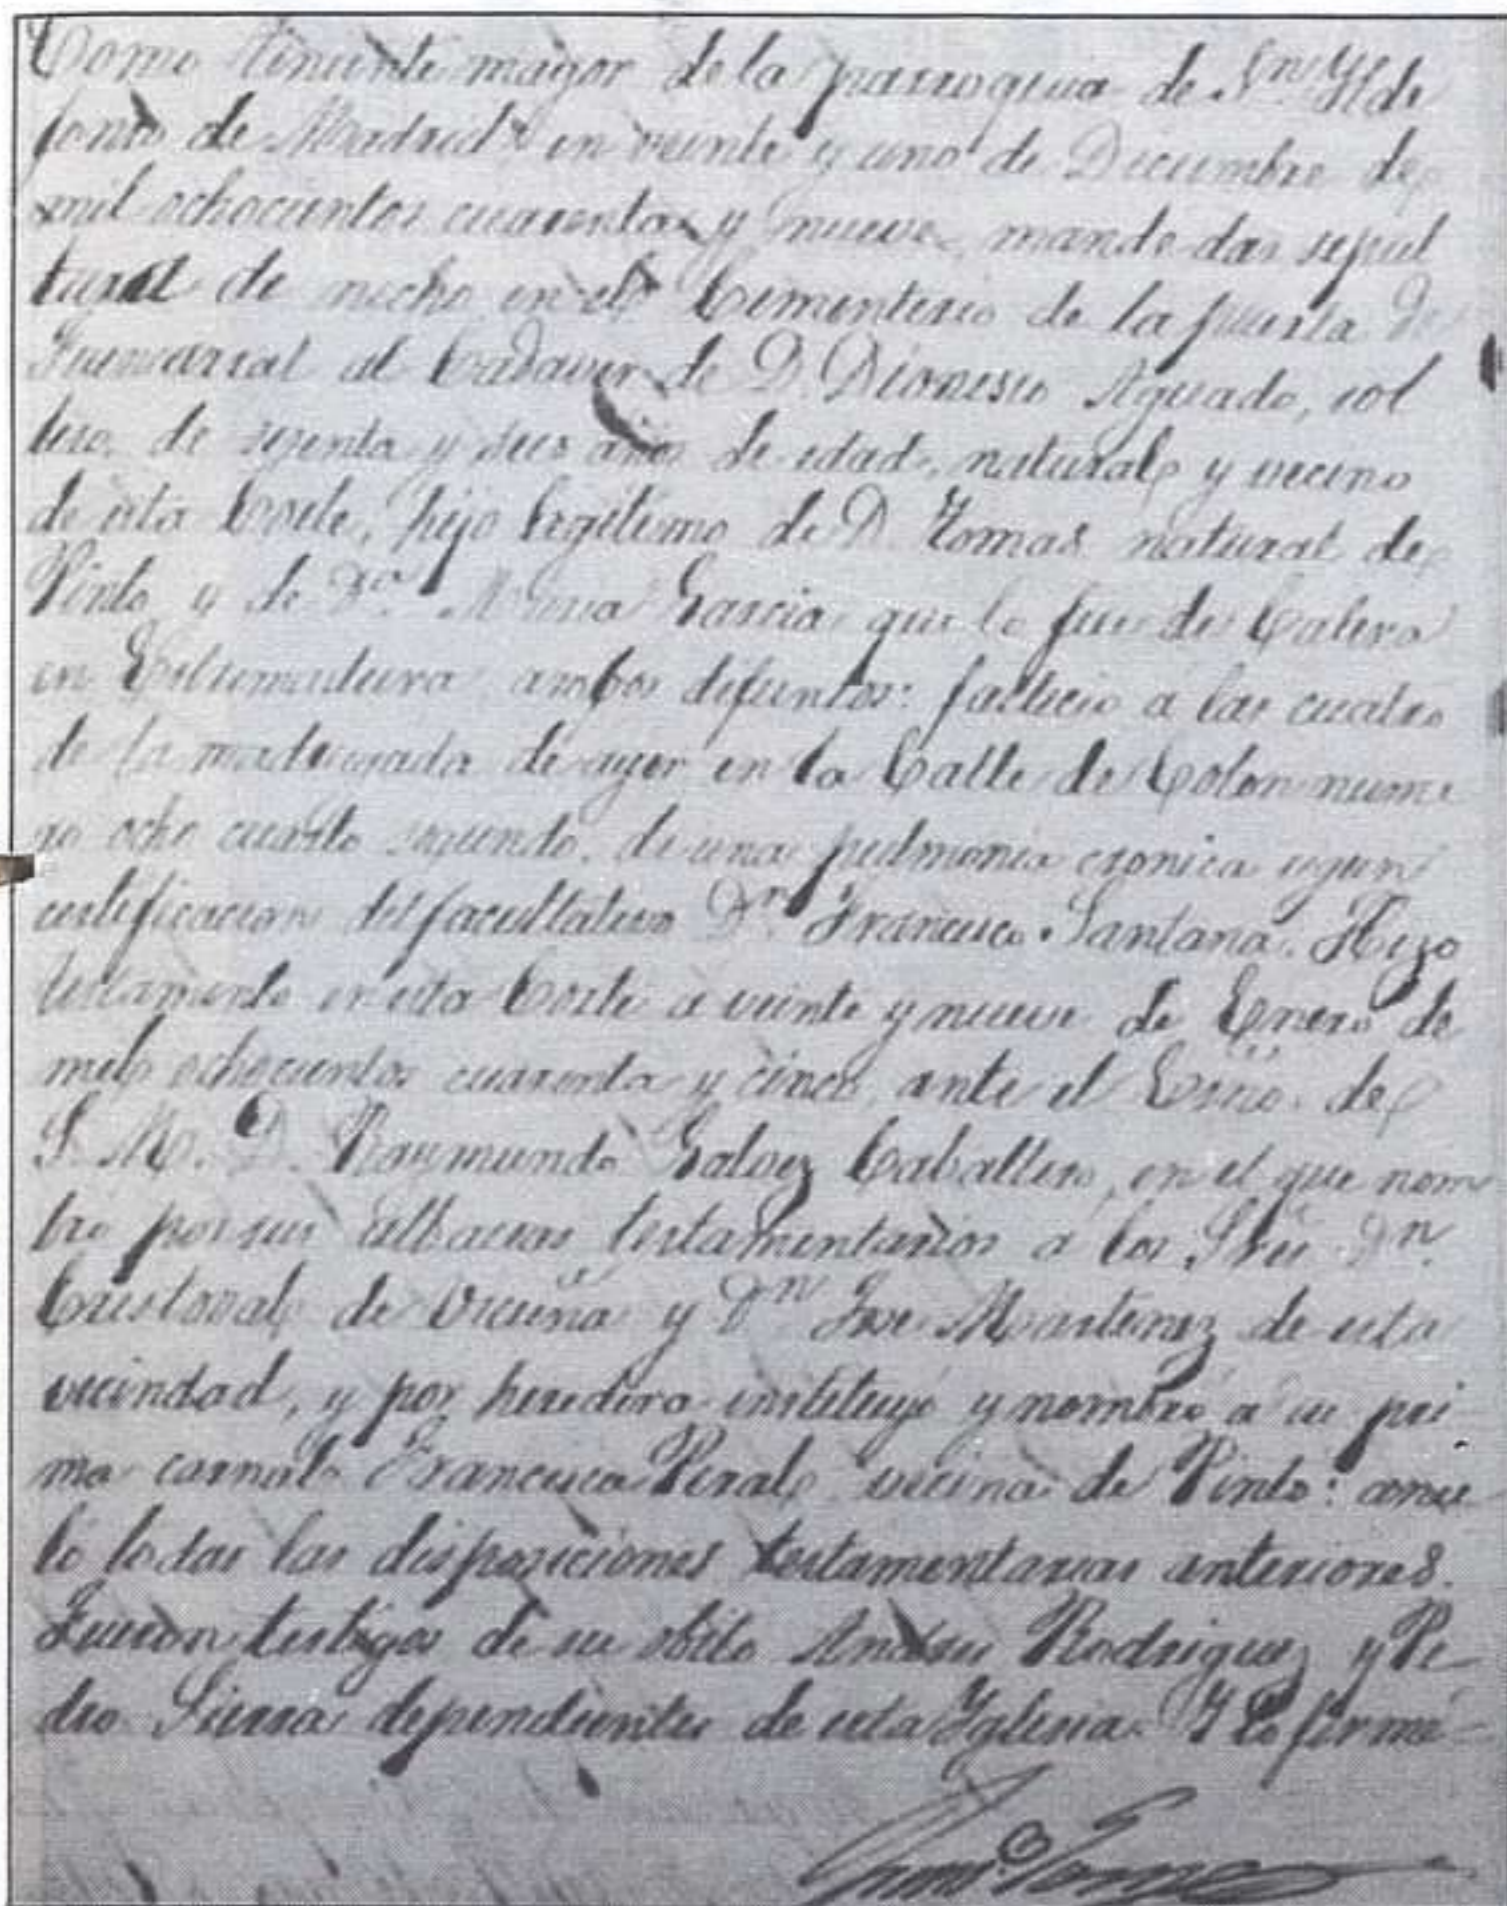 Como Teniente mayor de la parroquia de Sn Ylde
fonso de Madrid en veinte y uno de Diciembre de
mil ochocientos cuarenta y nueve mande dar sepul
tura de nicho en el Cementerio de la puerta de
Fuencarral al Cadaver de D Dionisio Aguado, sol
tero, de sesenta y seis años de edad, natural y vecino
de esta Corte, hijo legitimo de D. Tomas natural de
Pinto y de Dª Maria Garcia que lo fue de Calera
en Estremadura ambos difuntos: fallecio a las cuatro
de la madrugada de ayer en la Calle de Colon nume
ro ocho cuarto segundo, de una pulmonia cronica segun
certificacion del facultativo Dn Francisco Santana. Hizo
testamento en esta Corte a veinte y nueve de Enero de
mil ochocientos cuarenta y cinco ante el Esno. de
S. M. D. Raymundo Galvez Caballero, en el que nom
bro por sus albaceas testamentarios a los Sres Dn
Cristoval de Vicuña y Dn Jose Martinez de esta
vecindad, y por heredera instituyó y nombró a su pri
ma carnal Francisca Peral vecina de Pinto: anu
lo todas las disposiciones testamentarias anteriores.
Fueron testigos de su obito Andres Rodriguez y Pe
dro Sierra dependientes de esta Yglesia. Y lo firmé